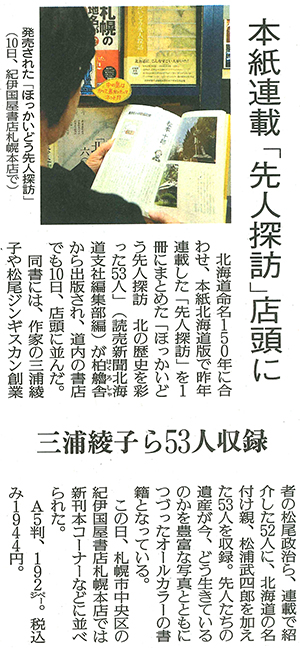 本紙連載「先人探訪」店頭に
発売された「ほっかいどう先人探訪」
(10日、紀伊国屋書店札幌本店で)
札幌の
地名が
北海道命名150年に合
わせ、本紙北海道版で昨年
連載した「先人探訪」を1
冊にまとめた「ほっかいど
う先人探訪 北の歴史を彩
った53人」(読売新聞北海
道支社編集部編)が柏艪舎
はくろしゃ
から出版され、道内の書店
でも10日、店頭に並んだ。
同書には、作家の三浦綾
子や松尾ジンギスカン創業
三浦綾子ら53人収録
者の松尾政治ら、連載で紹
介した52人に、北海道の名
付け親、松浦武四郎を加え
た53人を収録。先人たちの
遺産が今、どう生きている
のかを豊富な写真とともに
つづったオールカラーの書
籍となっている。
この日、札幌市中央区の
紀伊国屋書店札幌本店では
新刊本コーナーなどに並べ
られた。
A5判、192㌻。税込
み1944円。